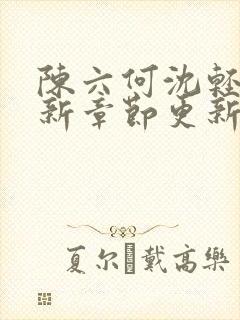 陳六何沈輕
新章節更新
夏尔 戴高樂